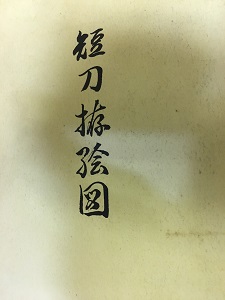 短刀拵絵図